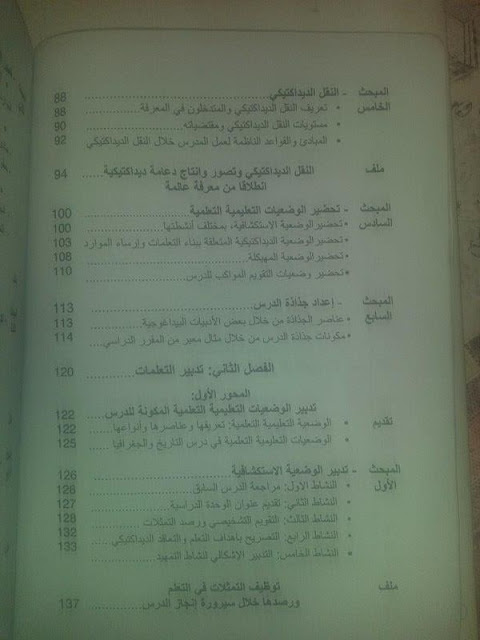 المبحث - النقل الديداكتيكي 88
الخامس • تعريف النقل الديداكتيكي والمتدخلون في المعرفة 88
• مستويات النقل الديداكتيكي ومقتضياته 90
• المبادئ والقواعد الناظمة لعمل المدرس خلال النقل الديداكتيكي 92
ملف النقل الديداكتيكي وتصور وإنتاج دعامة ديداكتيكية 94
انطلاقا من معرفة عالمة
المبحث - تحضير الوضعيات التعليمية التعلمية 100
السادس • تحضير الوضعية الاستكشافية، بمختلف أنشطتها 100
• تحضير الوضعية الديداكتيكية المتعلقة ببناء التعلمات وإرساء الموارد 103
• تحضير الوضعية المهيكلة 108
• تحضير وضعيات التقويم المواكب للدرس 110
المبحث - إعداد جذاذة الدرس 113
السابع • عناصر الجذاذة من خلال بعض الأدبيات البيداغوجية 113
• مكونات جذاذة الدرس من خلال مثال معبر من المقرر الدراسي 114
الفصل الثاني: تدبير التعلمات 120
المحور الأول:
تدبير الوضعيات التعليمية التعلمية المكونة للدرس 122
تقديم • الوضعية التعليمية التعلمية: تعريفها وعناصرها وأنواعها 122
• الوضعيات التعليمية التعلمية في درس التاريخ والجغرافيا 125
المبحث - تدبير الوضعية الاستكشافية 126
الأول • النشاط الاول: مراجعة الدرس السابق 126
• النشاط الثاني: تقديم عنوان الوحدة الدراسية 127
• النشاط الثالث: التقويم التشخيصي ورصد التمثلات 128
• النشاط الرابع: التصريح بأهداف التعلم والتعاقد الديداكتيكي 132
• النشاط الخامس: التدبير الإشكالي لنشاط التمهيد 133
ملف توظيف التمثلات في التعلم
ورصدها خلال سيرورة إنجاز الدرس 137